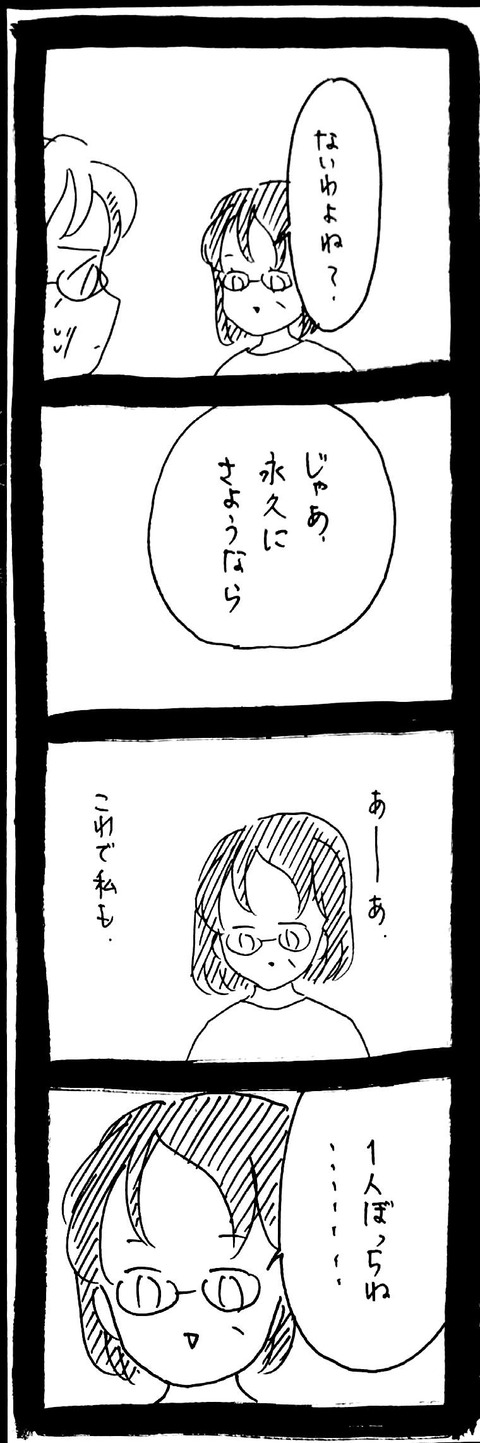 ないわよね？
じゃあ、
永久に
さようなら
あーあ.
これで私も.
1人ぼっちね
・・・・・・・